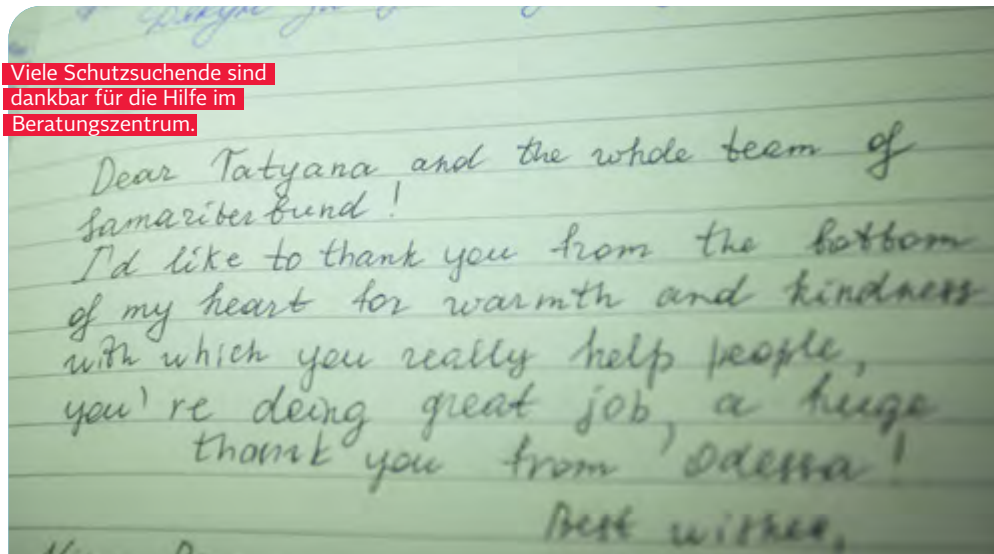 Viele Schutzsuchende sind
dankbar für die Hilfe im
Beratungszentrum.
Dear Tatyana and the whole team of
Samariterbund!
I'd like to thank you from the bottom
of my heart for warmth and kindness
with which you really help people,
you're doing great job, a huge
thank you from Odessa!
Best wishes,